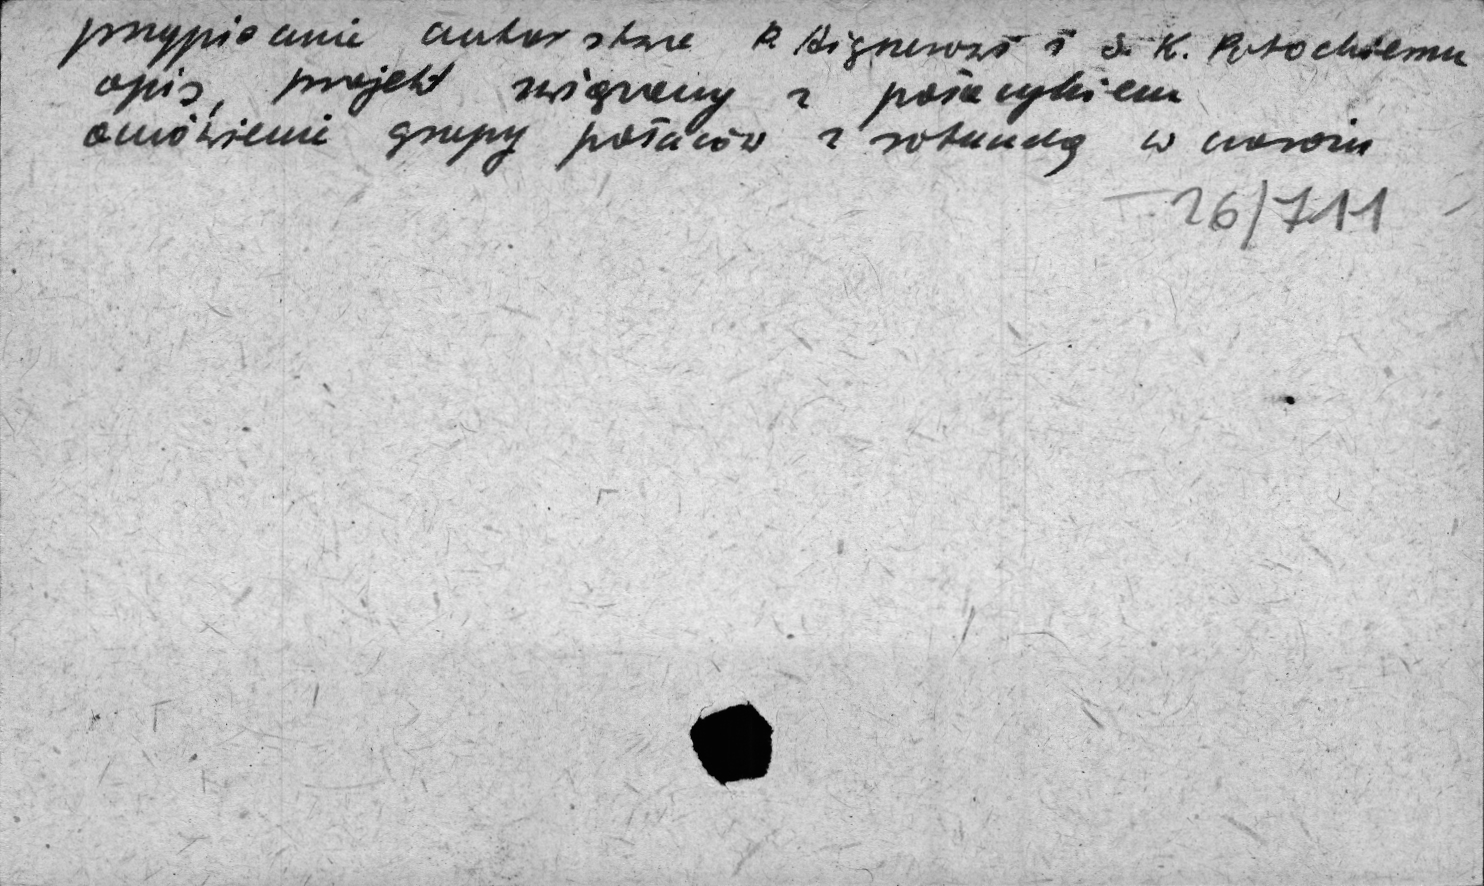 przypisanie autorstwa P. Aignerowi i S. K. Potockiemu
opis, projekt związany z pałacykiem
omówienie grupy pałaców z rotundą w
26/711